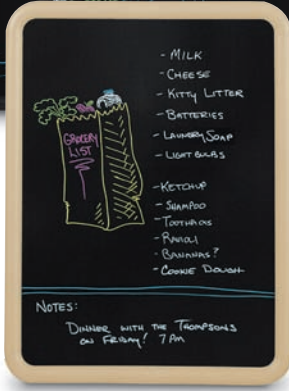 GROCERY
LIST
- MILK
- CHEESE
- KITTY LITTER
- BATTERIES
- LAUNDRY SOAP
- LIGHT BULBS
- KETCHUP
- SHAMPOO
- TOOTHPICKS
- RAVIOLI
- BANANAS?
- COOKIE DOUGH
NOTES:
DINNER WITH THE THOMPSONS
ON FRIDAY! 7 PM